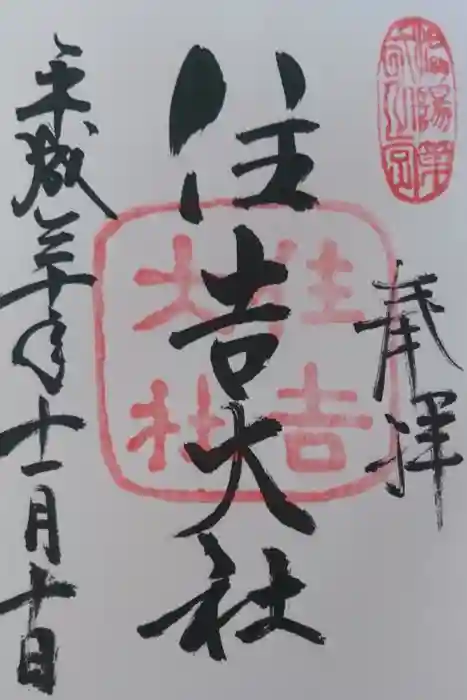 奉拝
住吉大社
住吉
大社
平成三十年十一月十日